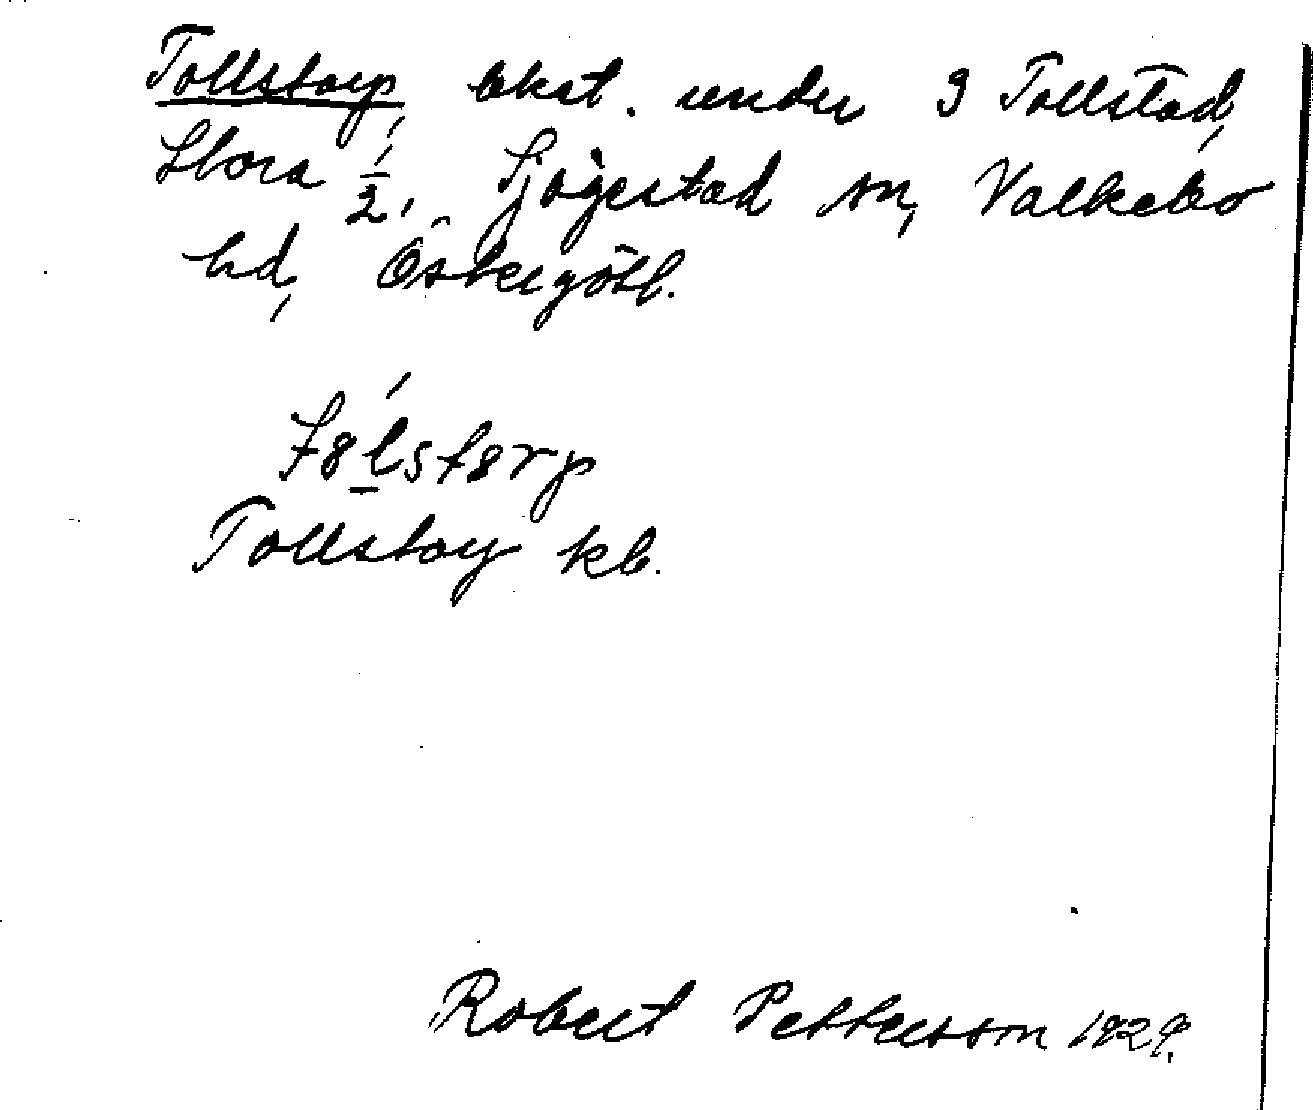 Tollstorp, lhst. under 3 Tollstad,
Stora 1/2, Sjögestad sn, Valkebo
hd, Östergötl.
Tollstorp kb.
Robert Pettersson 1929.